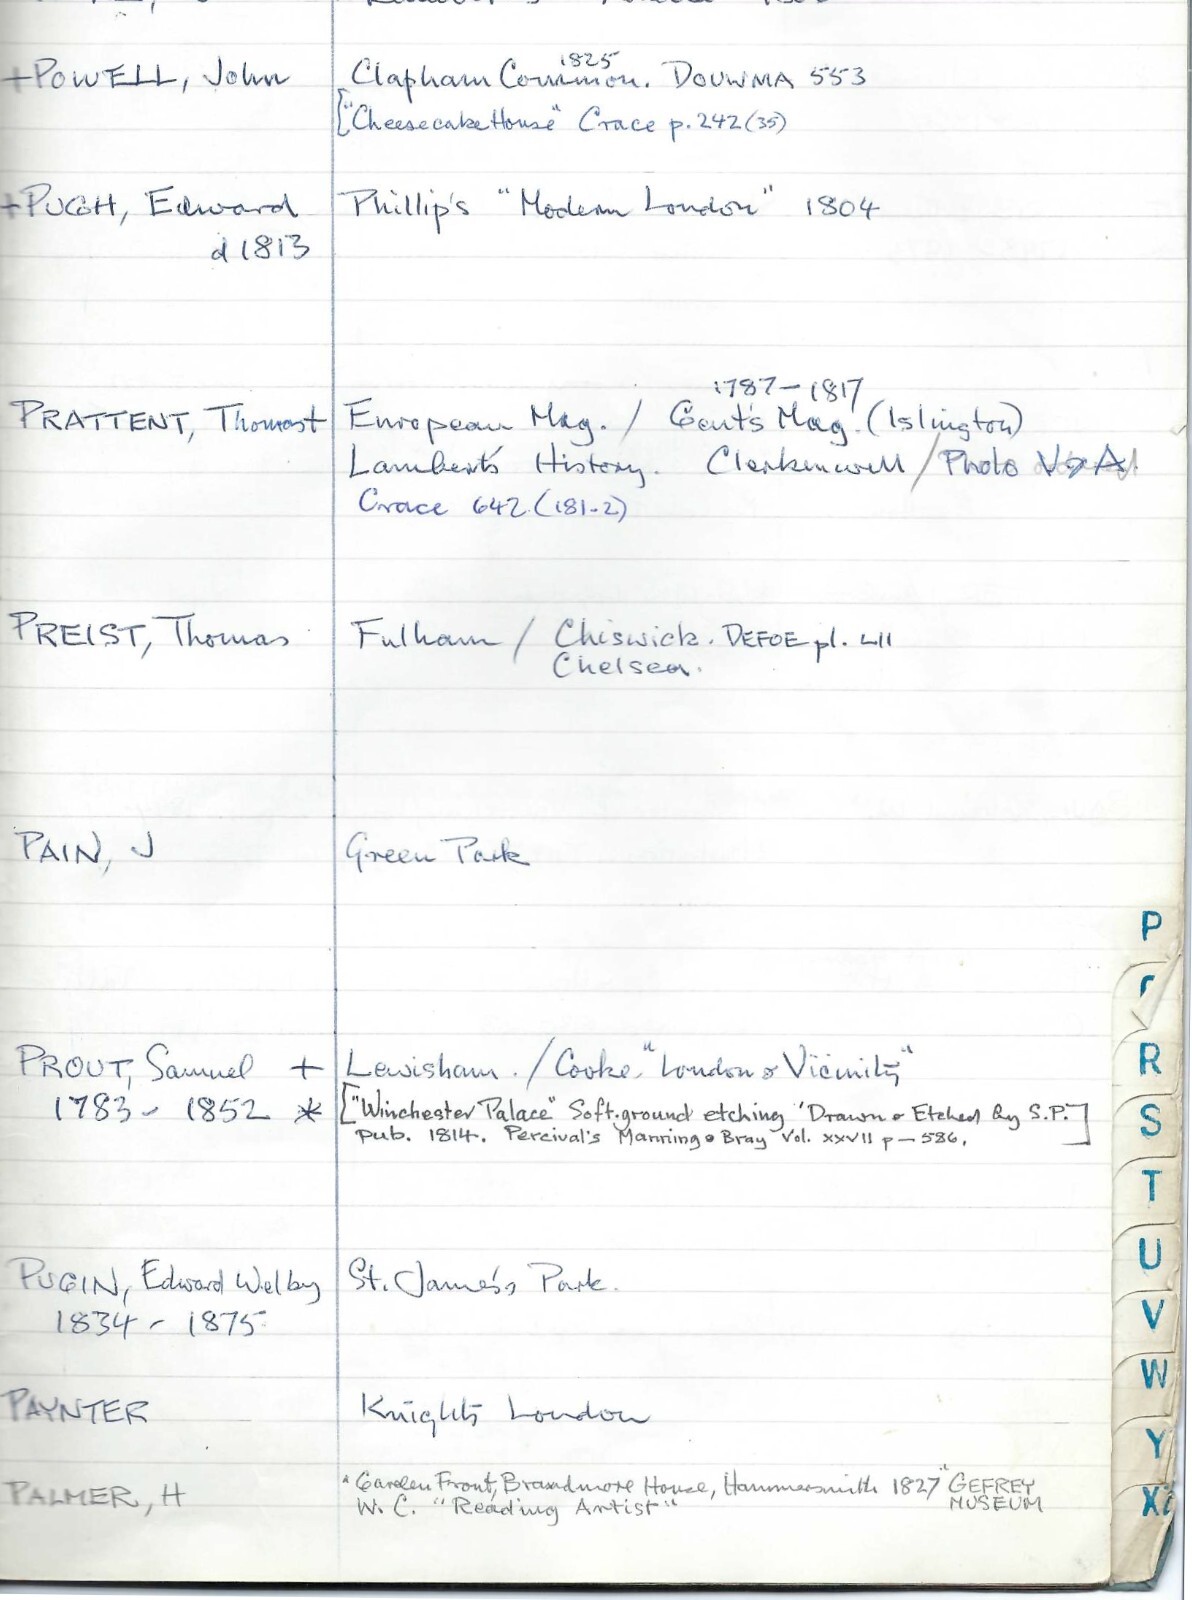 +POWELL, John Clapham Common. 1825 DOUWMA 553
["Cheesecake House" Crace p. 242 (35)
+PUGH, Edward Phillip's "Modern London" 1804
d 1813
1787 – 1817
PRATTENT, Thomas + European Mag. / Gent's Mag. (Islington)
Lambert's History. Clerkenwell / Photo V & A
Crace 642 (181-2)
PREIST, Thomas Fulham / Chiswick. DEFOE pl. LII
Chelsea.
PAIN, J Green Park
PROUT, Samuel + Lewisham. / Cooke "London & Vicinity"
1783 – 1852 * ["Winchester Palace" Soft-ground etching 'Drawn & Etched by S.P.']
pub. 1814. Percival's Manning & Bray Vol. XXVII p – 586.
PUGIN, Edward Welby St. James's Park.
1834 – 1875
PAYNTER Knight's London
PALMER, H "Garden Front, Brandmore House, Hammersmith 1827" GEFREY
W. C. "Reading Artist" MUSEUM
P
R
S
T
U
V
W
Y